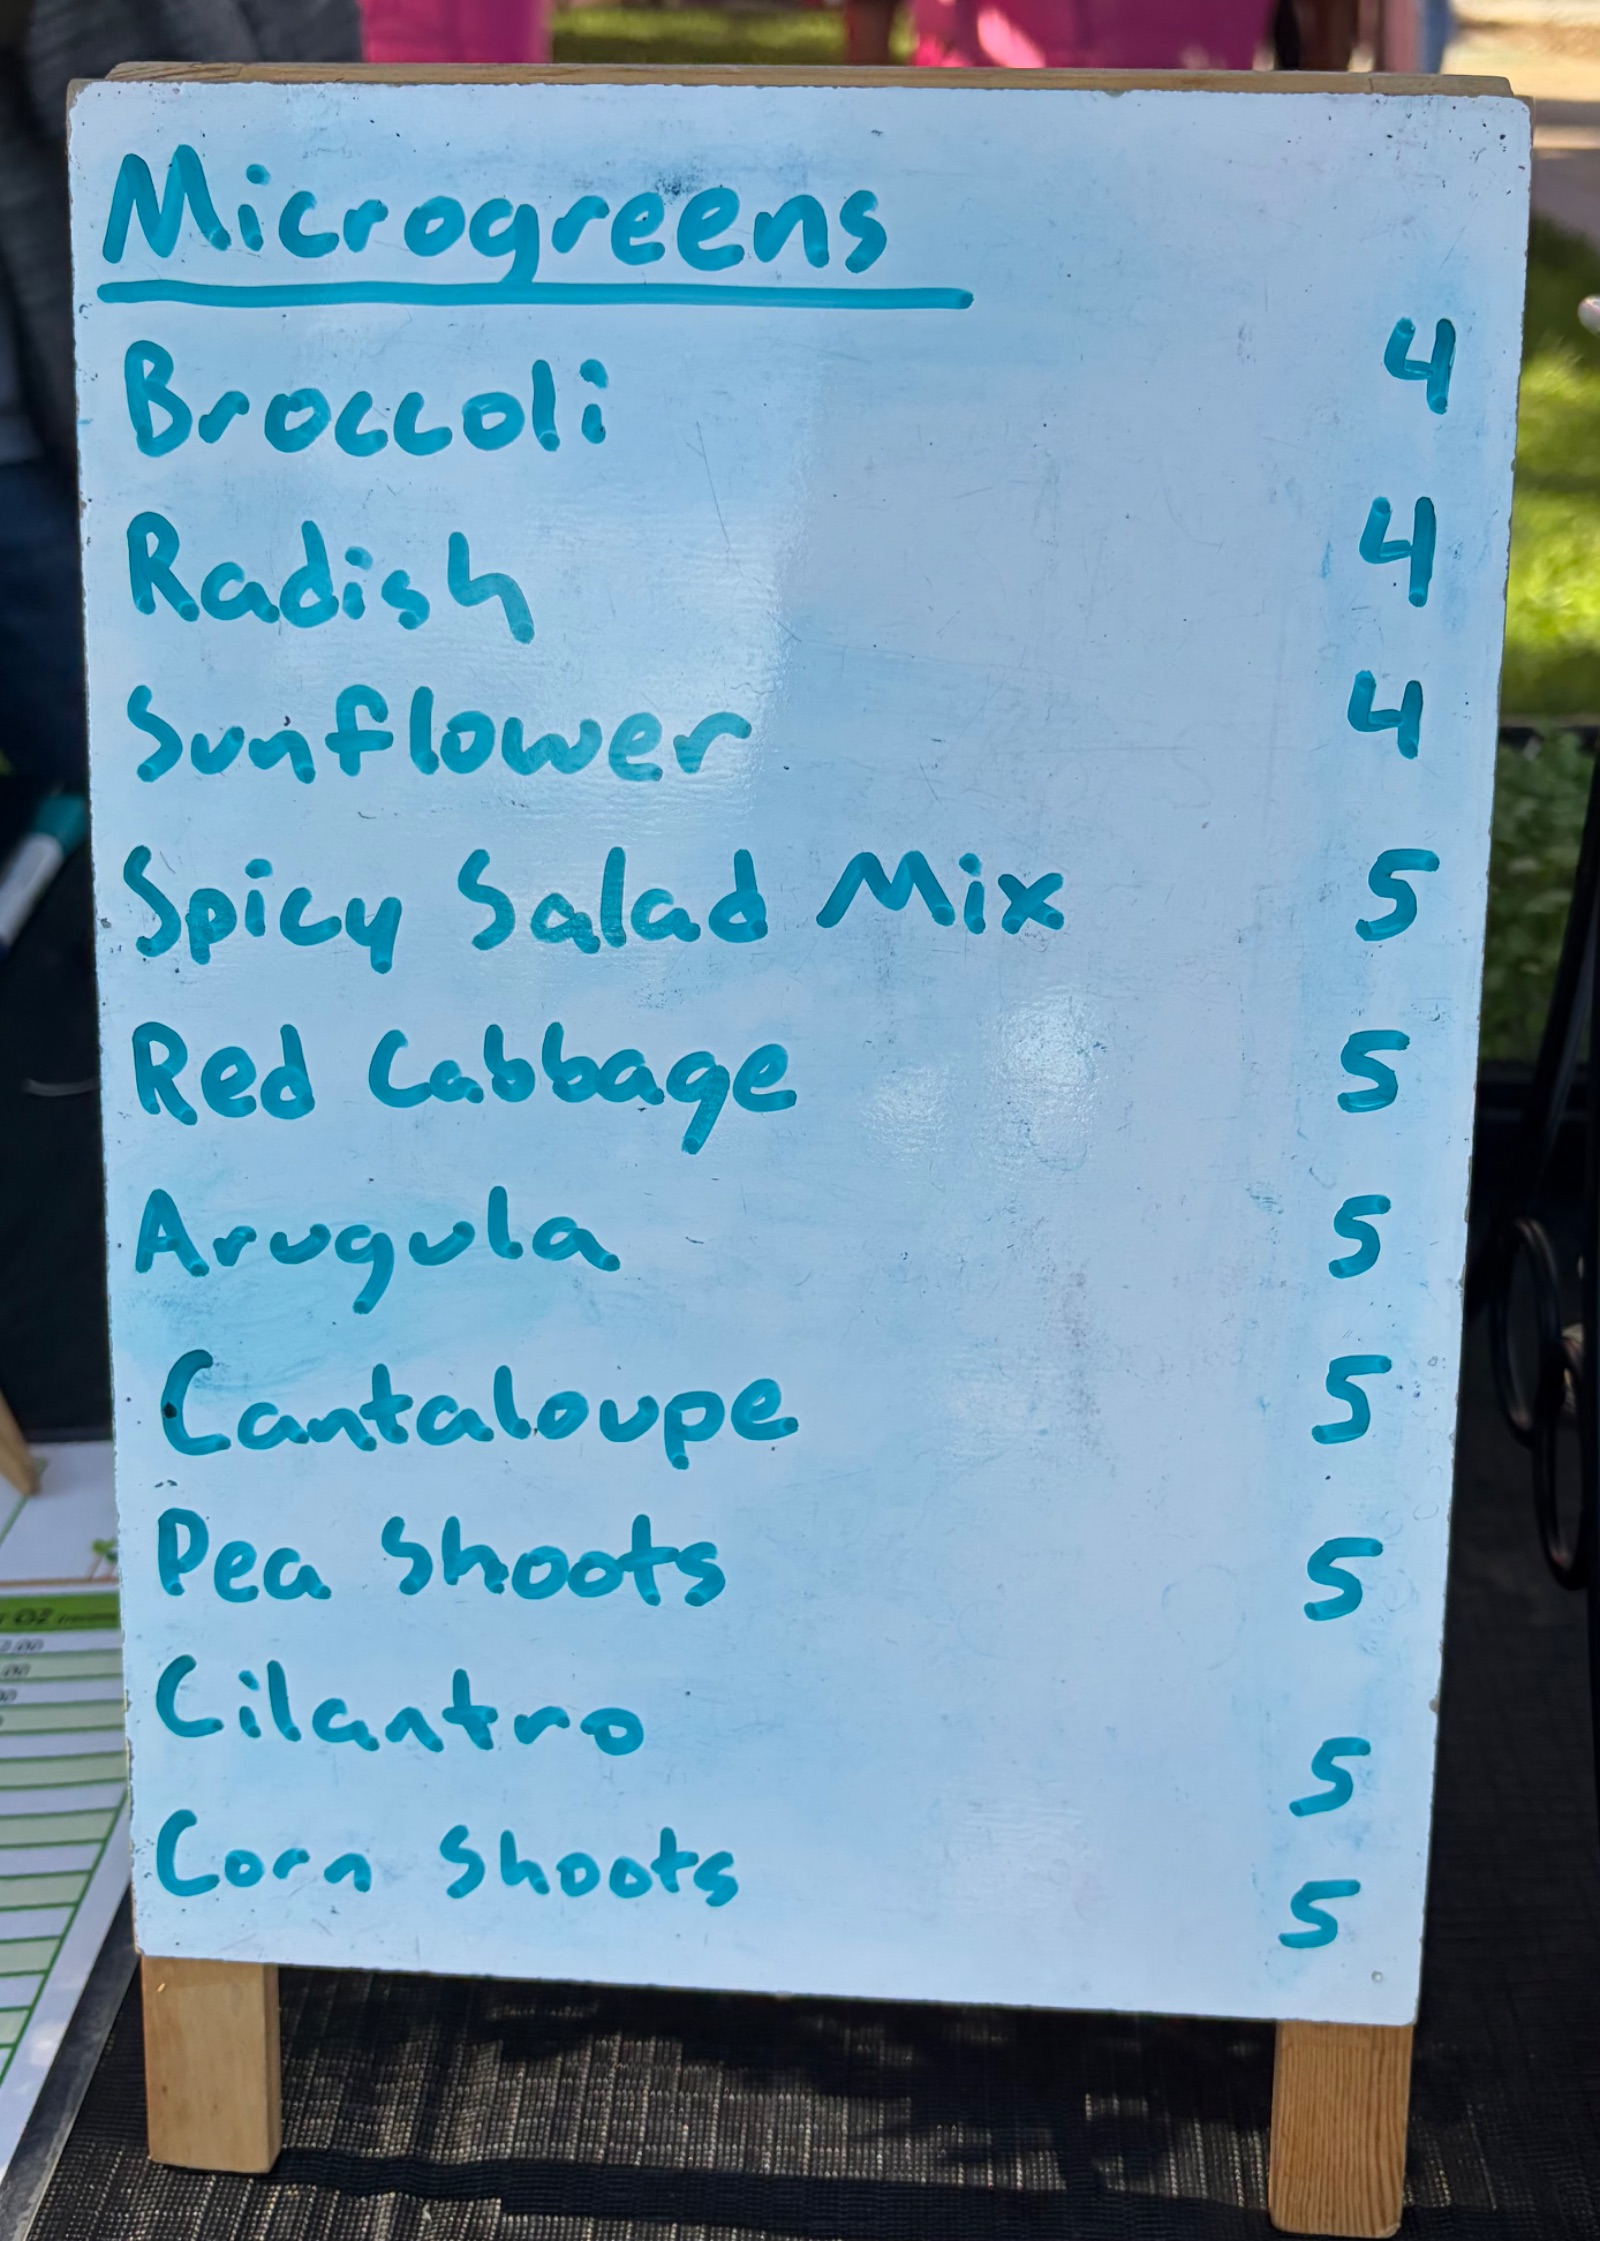 Microgreens
Broccoli 4
Radish 4
Sunflower 4
Spicy Salad Mix 5
Red Cabbage 5
Arugula 5
Cantaloupe 5
Pea Shoots 5
Cilantro 5
Corn Shoots 5